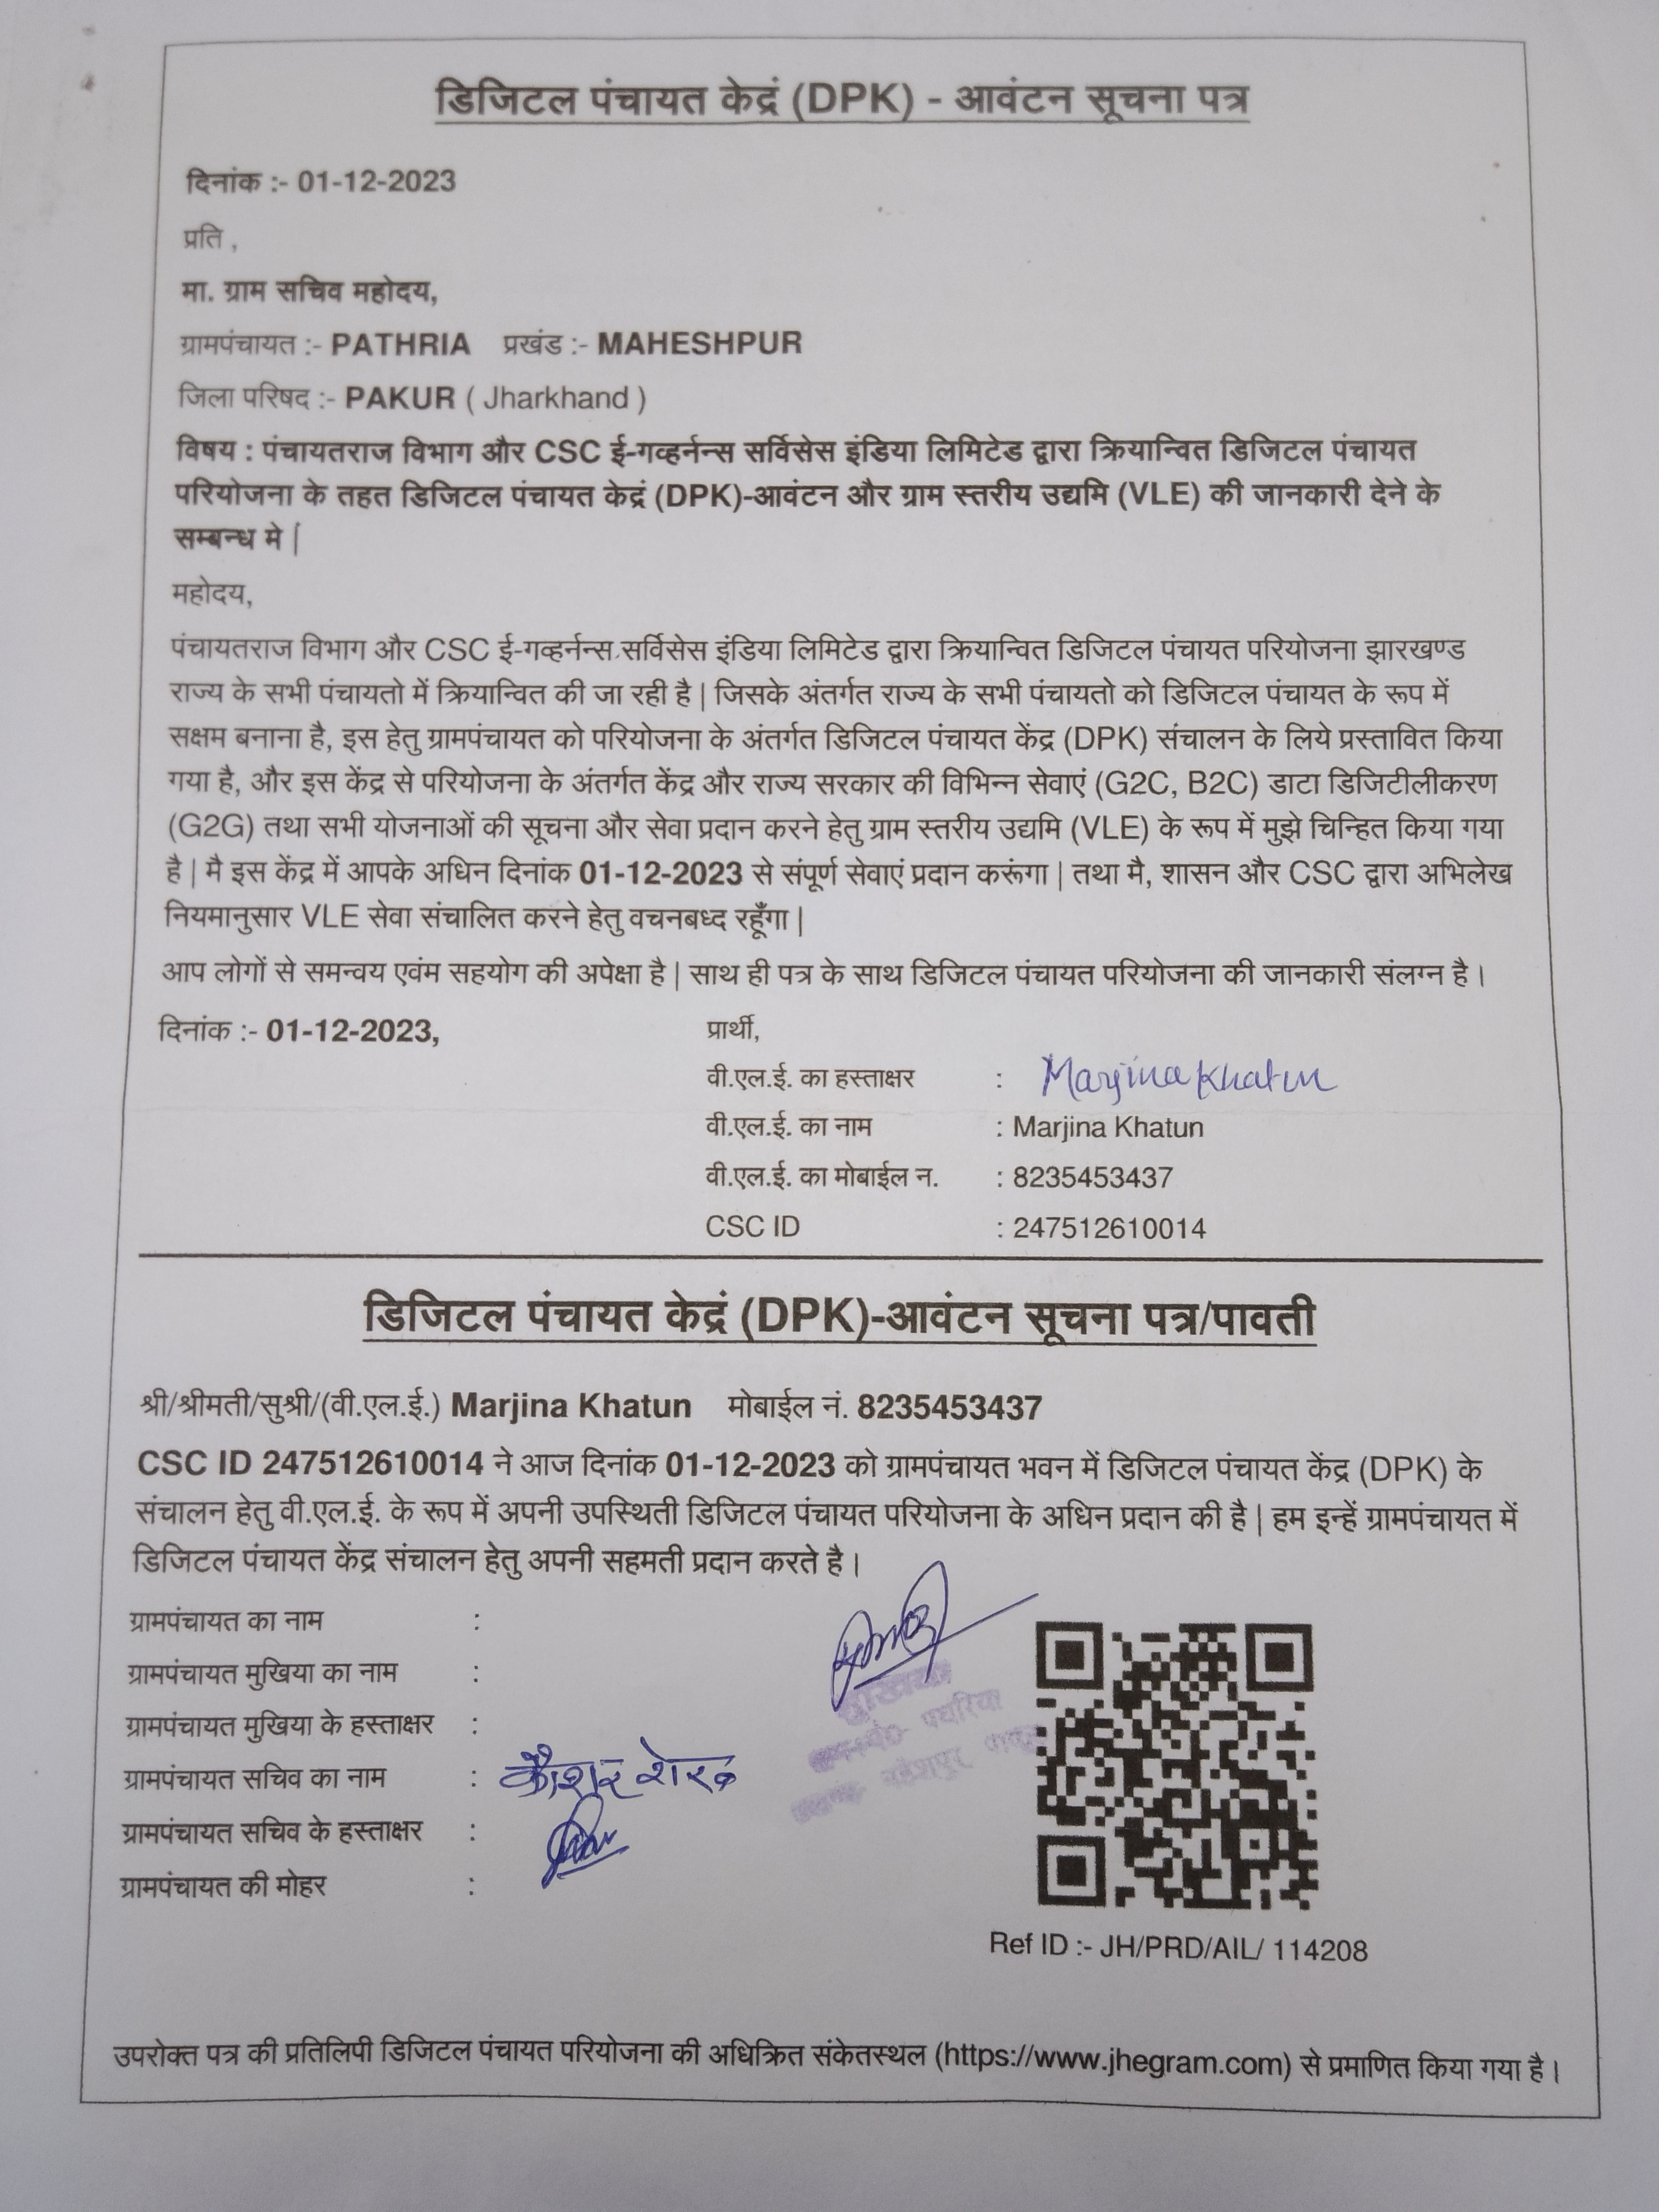 डिजिटल पंचायत केद्रं (DPK) - आवंटन सूचना पत्र
दिनांक :- 01-12-2023
प्रति ,
मा. ग्राम सचिव महोदय,
ग्रामपंचायत :- PATHRIA प्रखंड :- MAHESHPUR
जिला परिषद :- PAKUR ( Jharkhand )
विषय : पंचायतराज विभाग और CSC ई-गव्हर्नन्स सर्विसेस इंडिया लिमिटेड द्वारा क्रियान्वित डिजिटल पंचायत
परियोजना के तहत डिजिटल पंचायत केद्रं (DPK)-आवंटन और ग्राम स्तरीय उद्यमि (VLE) की जानकारी देने के
सम्बन्ध मे |
महोदय,
पंचायतराज विभाग और CSC ई-गव्हर्नन्स सर्विसेस इंडिया लिमिटेड द्वारा क्रियान्वित डिजिटल पंचायत परियोजना झारखण्ड
राज्य के सभी पंचायतो में क्रियान्वित की जा रही है | जिसके अंतर्गत राज्य के सभी पंचायतो को डिजिटल पंचायत के रूप में
सक्षम बनाना है, इस हेतु ग्रामपंचायत को परियोजना के अंतर्गत डिजिटल पंचायत केंद्र (DPK) संचालन के लिये प्रस्तावित किया
गया है, और इस केंद्र से परियोजना के अंतर्गत केंद्र और राज्य सरकार की विभिन्न सेवाएं (G2C, B2C) डाटा डिजिटीलीकरण
(G2G) तथा सभी योजनाओं की सूचना और सेवा प्रदान करने हेतु ग्राम स्तरीय उद्यमि (VLE) के रूप में मुझे चिन्हित किया गया
है | मै इस केंद्र में आपके अधिन दिनांक 01-12-2023 से संपूर्ण सेवाएं प्रदान करूंगा | तथा मै, शासन और CSC द्वारा अभिलेख
नियमानुसार VLE सेवा संचालित करने हेतु वचनबध्द रहूँगा |
आप लोगों से समन्वय एवंम सहयोग की अपेक्षा है | साथ ही पत्र के साथ डिजिटल पंचायत परियोजना की जानकारी संलग्न है।
दिनांक :- 01-12-2023, प्रार्थी,
वी.एल.ई. का हस्ताक्षर : Marjina Khatun
वी.एल.ई. का नाम : Marjina Khatun
वी.एल.ई. का मोबाईल न. : 8235453437
CSC ID : 247512610014
डिजिटल पंचायत केद्रं (DPK)-आवंटन सूचना पत्र/पावती
श्री/श्रीमती/सुश्री/(वी.एल.ई.) Marjina Khatun मोबाईल नं. 8235453437
CSC ID 247512610014 ने आज दिनांक 01-12-2023 को ग्रामपंचायत भवन में डिजिटल पंचायत केंद्र (DPK) के
संचालन हेतु वी.एल.ई. के रूप में अपनी उपस्थिती डिजिटल पंचायत परियोजना के अधिन प्रदान की है | हम इन्हें ग्रामपंचायत में
डिजिटल पंचायत केंद्र संचालन हेतु अपनी सहमती प्रदान करते है।
ग्रामपंचायत का नाम :
ग्रामपंचायत मुखिया का नाम :
ग्रामपंचायत मुखिया के हस्ताक्षर :
मुखिया
पथरिया
महेशपुर
ग्रामपंचायत सचिव का नाम : कौशर शेख
ग्रामपंचायत सचिव के हस्ताक्षर :
ग्रामपंचायत की मोहर :
Ref ID :- JH/PRD/AIL/ 114208
उपरोक्त पत्र की प्रतिलिपी डिजिटल पंचायत परियोजना की अधिक्रित संकेतस्थल (https://www.jhegram.com) से प्रमाणित किया गया है।